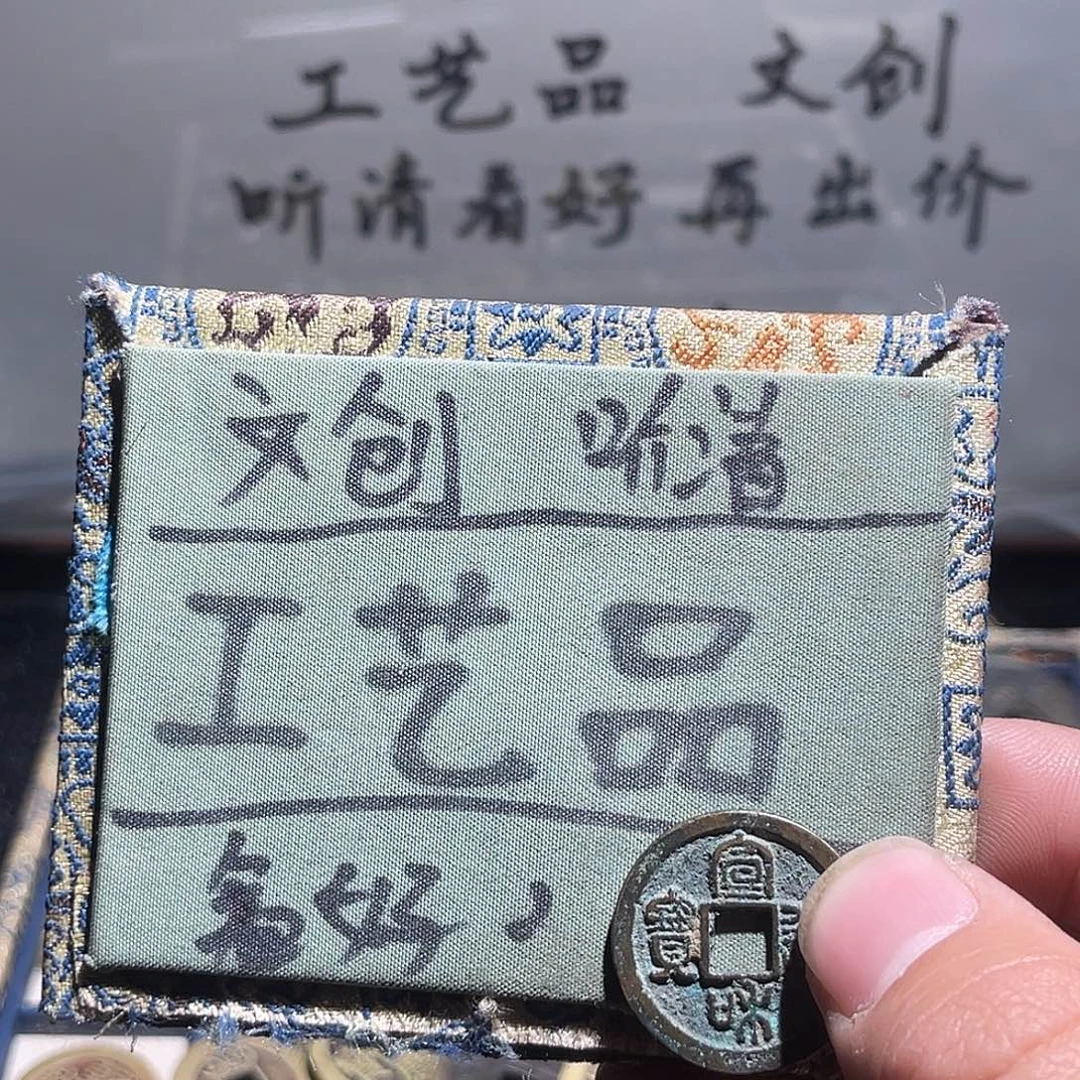 工艺品 文创
听清看好再出价
文创 听清
工艺品
看好,
宣和
寳